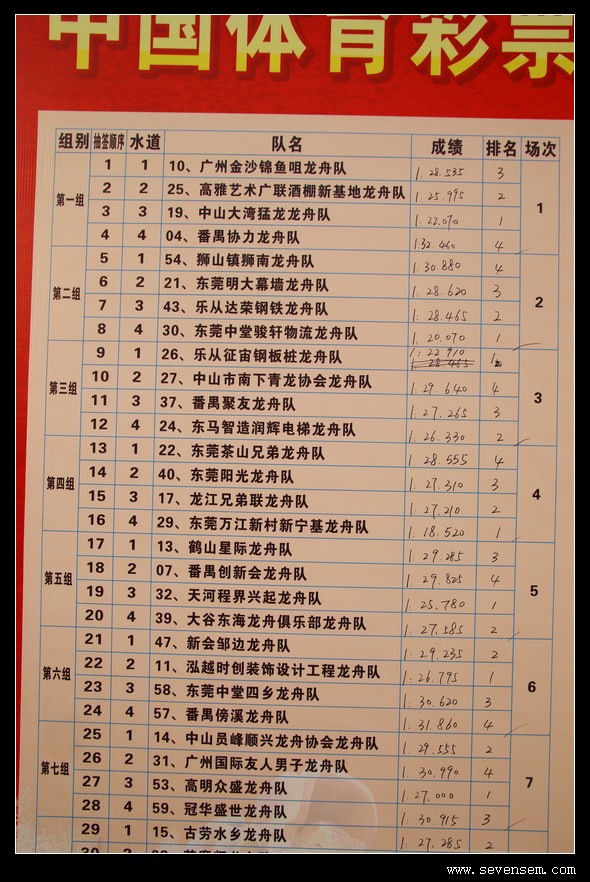 中国体育彩票
组别 抽签顺序 水道 队名 成绩 排名 场次
第一组 1 1 10、广州金沙锦鱼咀龙舟队 1:28.535 3 1
2 2 25、高雅艺术广联酒棚新基地龙舟队 1:25.995 2
3 3 19、中山大湾猛龙龙舟队 1:22.070 1
4 4 04、番禺协力龙舟队 1:32.460 4
第二组 5 1 54、狮山镇狮南龙舟队 1:30.880 4 2
6 2 21、东莞明大幕墙龙舟队 1:28.620 3
7 3 43、乐从达荣钢铁龙舟队 1:28.465 2
8 4 30、东莞中堂骏轩物流龙舟队 1:20.070 1
第三组 9 1 26、乐从征宙钢板桩龙舟队 1:22.910 1 3
10 2 27、中山市南下青龙协会龙舟队 1:29.640 4
11 3 37、番禺聚友龙舟队 1:27.265 3
12 4 24、东马智造润辉电梯龙舟队 1:26.330 2
第四组 13 1 22、东莞茶山兄弟龙舟队 1:28.555 4 4
14 2 40、东莞阳光龙舟队 1:27.310 3
15 3 17、龙江兄弟联龙舟队 1:27.210 2
16 4 29、东莞万江新村新宁基龙舟队 1:18.520 1
第五组 17 1 13、鹤山星际龙舟队 1:29.285 3 5
18 2 07、番禺创新会龙舟队 1:29.825 4
19 3 32、天河程界兴起龙舟队 1:25.780 1
20 4 39、大谷东海龙舟俱乐部龙舟队 1:27.585 2
第六组 21 1 47、新会邹边龙舟队 1:29.235 2 6
22 2 11、泓越时创装饰设计工程龙舟队 1:26.795 1
23 3 58、东莞中堂四乡龙舟队 1:30.620 3
24 4 57、番禺傍溪龙舟队 1:31.860 4
第七组 25 1 14、中山员峰顺兴龙舟协会龙舟队 1:29.555 2 7
26 2 31、广州国际友人男子龙舟队 1:30.990 4
27 3 53、高明众盛龙舟队 1:27.000 1
28 4 59、冠华盛世龙舟队 1:30.915 3
29 1 15、古劳水乡龙舟队 1:27.285 2
www.sevensem.com